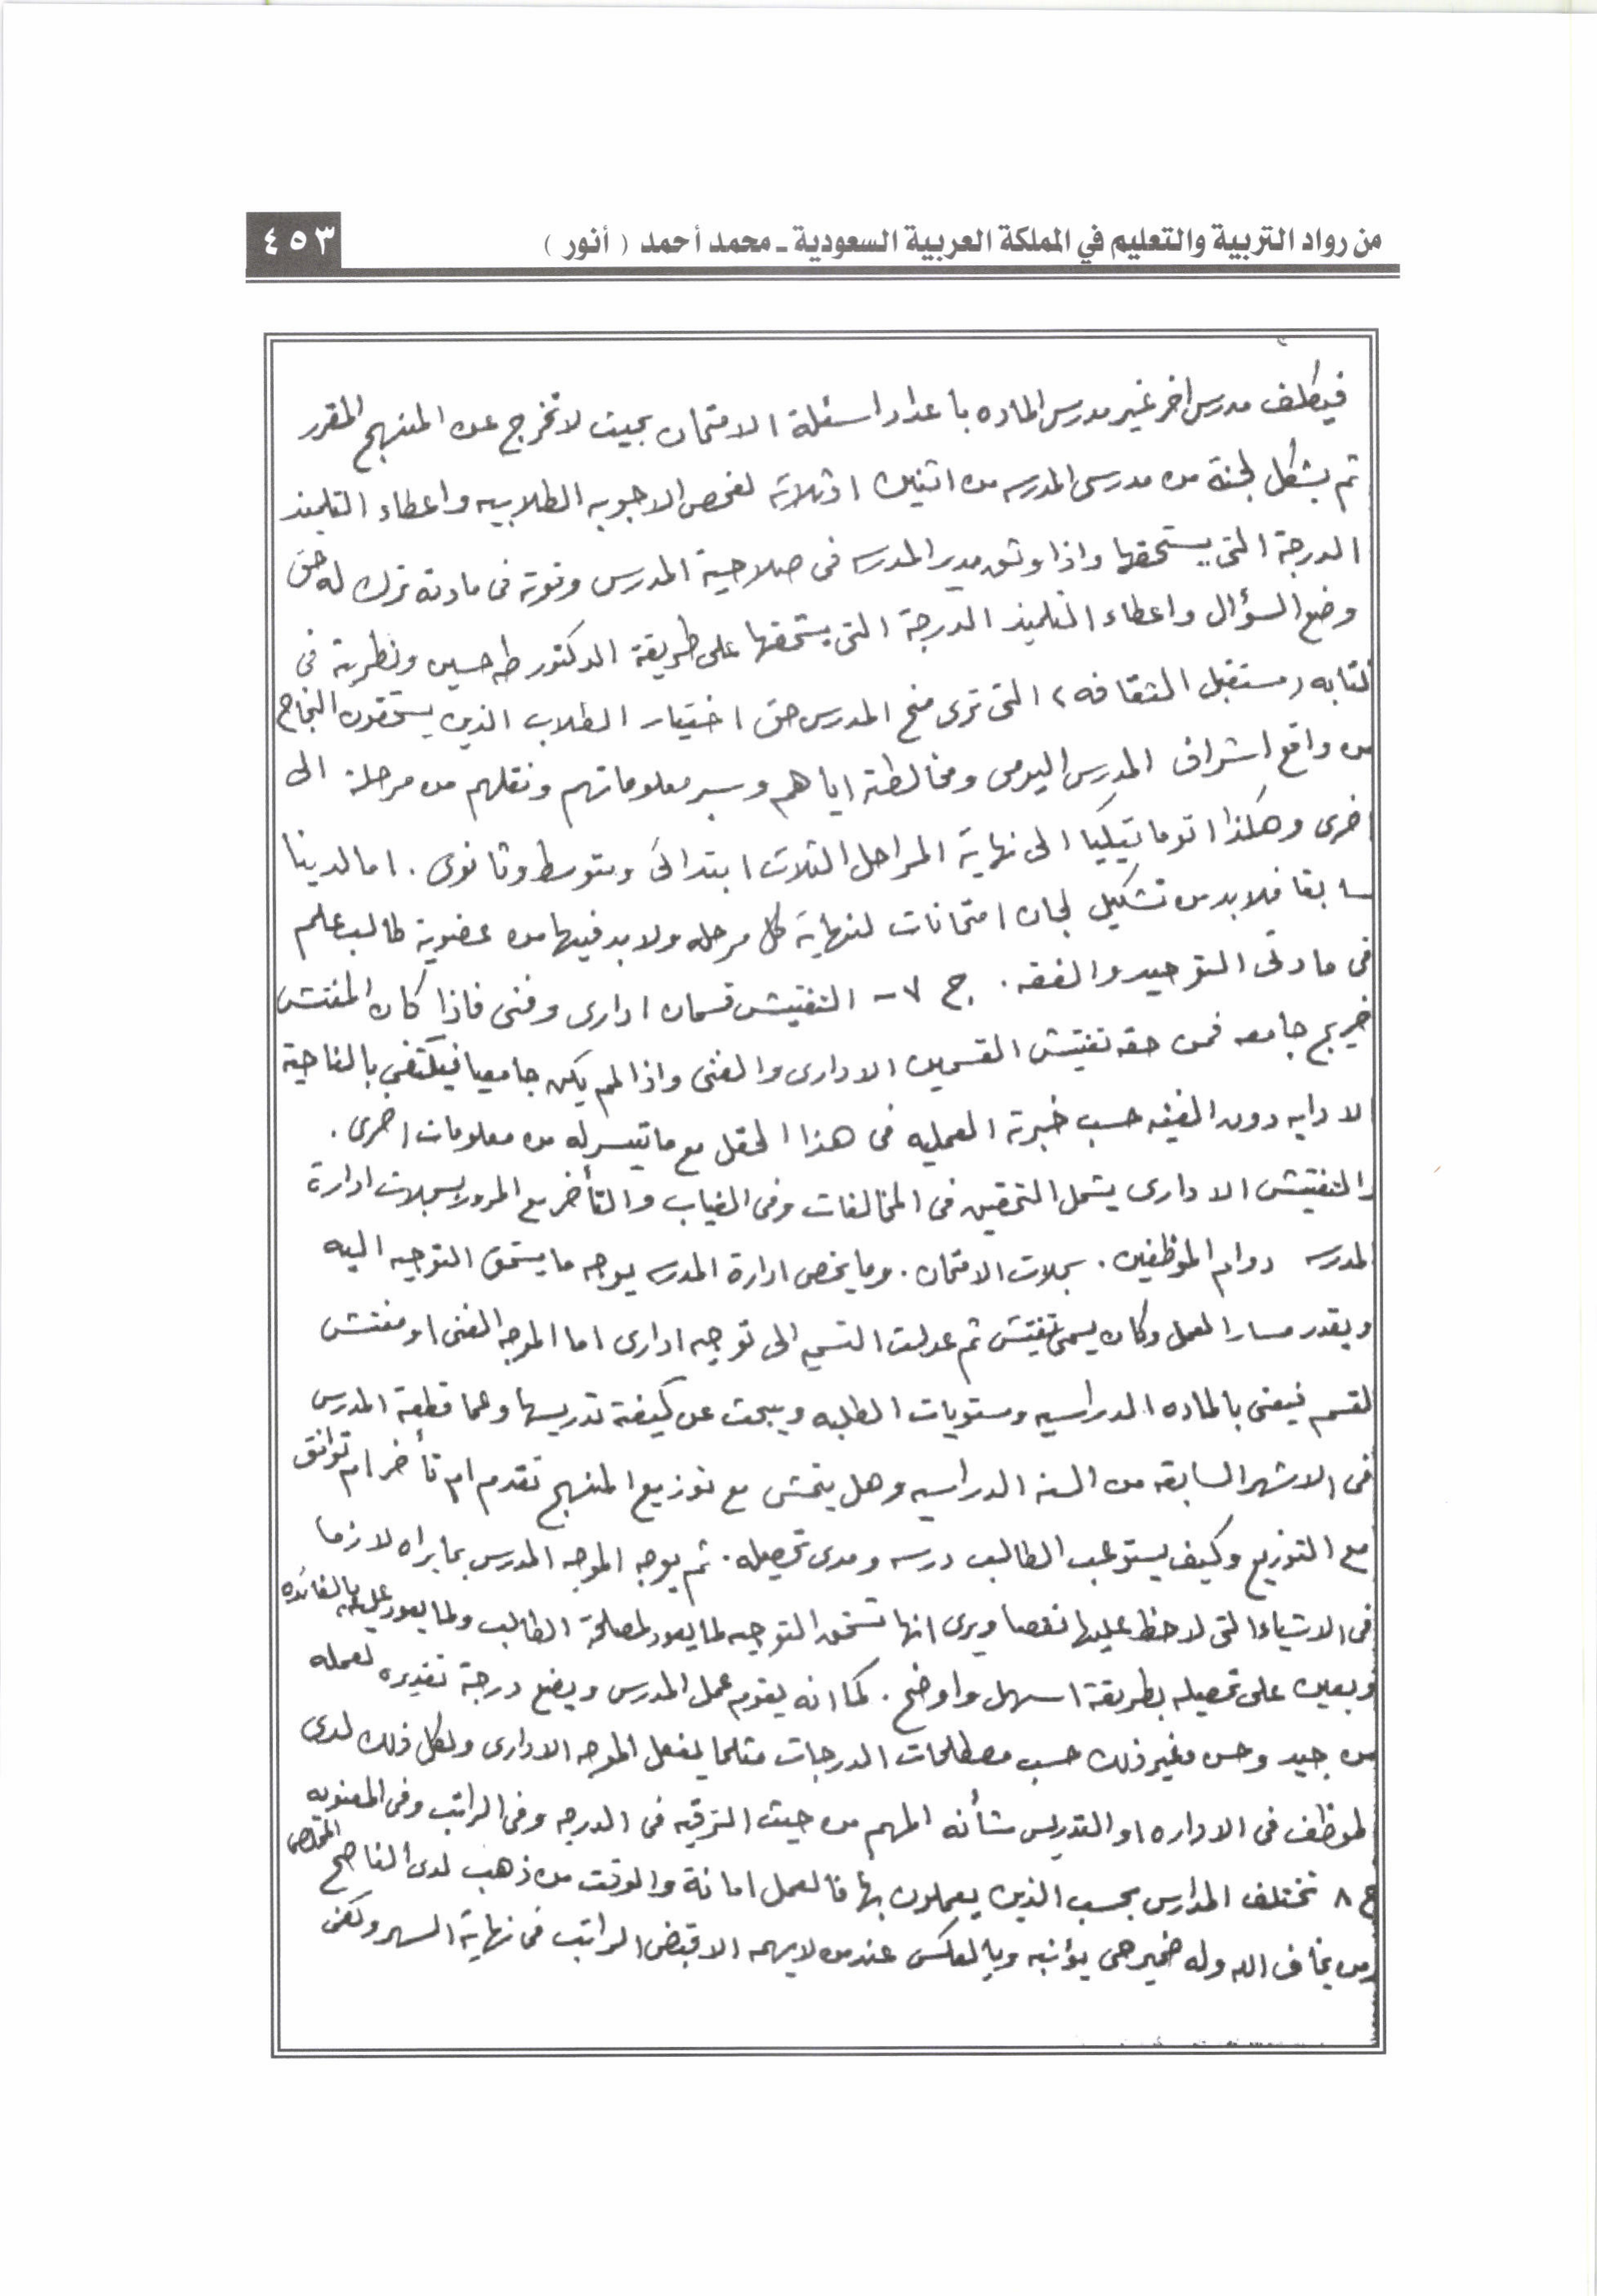 من رواد التربية والتعليم في المملكة العربية السعودية ـ محمد أحمد ( أنور )
٤٥٣
فيكلف مدرس اخر غير مدرس الماده باعداد اسئلة الامتحان بحيث لا تخرج عن المنهج المقرر
ثم يشكل لجنة من مدرسى المدرسه من اثنين او ثلاثة لفحص الاجوبه الطلابيه واعطاء التلميذ
الدرجة التى يستحقها واذا وثق مدير المدرسه فى صلاحية المدرس وقوته فى مادته ترك له حق
وضع السؤال واعطاء التلميذ الدرجة التى يستحقها على طريقة الدكتور طه حسين ونظريته فى
كتابه (مستقبل الثقافه) التى ترى منح المدرس حق اختيار الطلاب الذين يستحقون النجاح
من واقع اشراف المدرس اليومى ومخالطته اياهم وسبر معلوماتهم ونقلهم من مرحلة الى
اخرى وهكذا اتوماتيكيا الى نهاية المراحل الثلاث ابتدائى ومتوسط وثانوى . اما لدينا
سابقا فلابد من تشكيل لجان امتحانات لنهاية كل مرحله ولابد فيها من عضوية طالب علم
فى مادتى التوحيد والفقه . ج ٧ – التفتيش قسمان ادارى وفنى فاذا كان المفتش
خريج جامعه فمن حقه تفتيش القسمين الادارى والفنى واذا لم يكن جامعيا فيكتفى بالناحية
الادايه دون الفنيه حسب خبرته العمليه فى هذا الحقل مع ما تيسر له من معلومات اخرى .
والتفتيش الادارى يشمل التحقيق فى المخالفات وفى الغياب والتأخر مع المرور بسجلات ادارة
المدرسه دوام الموظفين . سجلات الامتحان . وما يخص ادارة المدرسه يوجه ما يستحق التوجيه اليه
ويقدر مسار العمل وكان يسمى تفتيش ثم عدلت التسميه الى توجيه ادارى اما الموجه الفنى او مفتش
القسم فيعنى بالماده الدراسيه ومستويات الطلبه ويبحث عن كيفية تدريسها وعما قطعه المدرس
فى الاشهر السابقه من السنه الدراسيه وهل يتمشى مع توزيع المنهج تقدم ام تأخر ام توافق
مع التوزيع وكيف يستوعب الطالب درسه ومدى تحصيله . ثم يوجه الموجه المدرس بما يراه لازما
فى الاشياء التى لاحظ عليها نقصا ويرى انها تستحق التوجيه لما يعود لمصلحة الطالب ولما يعود عليه بالفائده
ويعين على تحصيله بطريقة اسهل واوضح . كما انه يقوم عمل المدرس ويضع درجة تقديره لعمله
من جيد وحسن وغير ذلك حسب مصطلحات الدرجات مثلما يفعل الموجه الادارى ولكل ذلك لدى
الموظف فى الاداره او التدريس شأنه المهم من حيث الترقيه فى الدرجه وفى الراتب وفى المعنويه
ج ٨ تختلف المدارس بحسب الذين يعملون بها فالعمل امانة والوقت من ذهب لدى الناصح المخلص
ومن يخاف الله وله ضمير حى يؤنبه وبالعكس عند من لا يهمه الا قبض الراتب فى نهاية الشهر وكفى